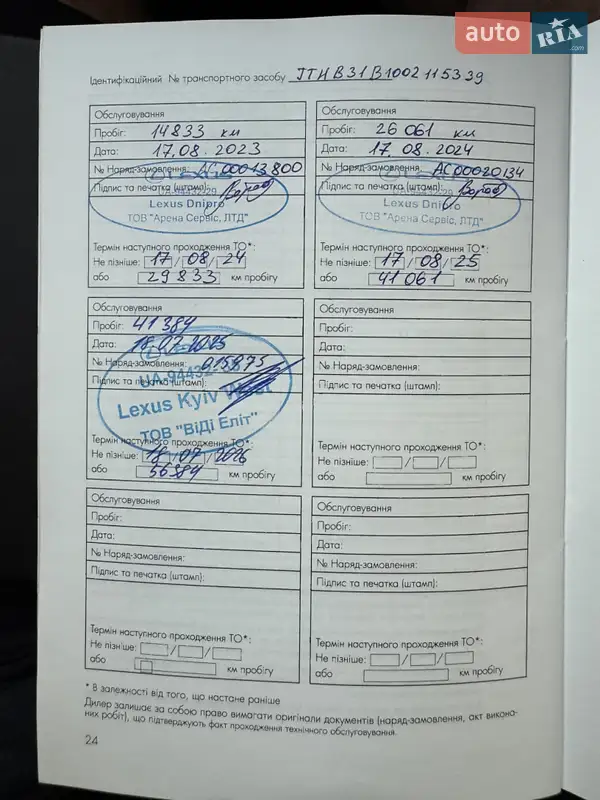 auto RIA .com
Ідентифікаційний № транспортного засобу JTHB31B1002115339
Обслуговування
Пробіг: 14833 км
Дата: 17.08.2023
№ Наряд-замовлення: АС00013800
Підпис та печатка (штамп):
UA-94432-29
Lexus Dnipro
ТОВ "Арена Сервіс, ЛТД"
Термін наступного проходження ТО*:
Не пізніше: 17/08/24
або 29833 км пробігу
Обслуговування
Пробіг: 26061 км
Дата: 17.08.2024
№ Наряд-замовлення: АС00020134
Підпис та печатка (штамп):
UA-94432-29
Lexus Dnipro
ТОВ "Арена Сервіс, ЛТД"
Термін наступного проходження ТО*:
Не пізніше: 17/08/25
або 41061 км пробігу
Обслуговування
Пробіг: 41384
Дата: 18.07.2025
№ Наряд-замовлення: 015875
Підпис та печатка (штамп):
Lexus Kyiv West
ТОВ "ВіДі Еліт"
Термін наступного проходження ТО*:
Не пізніше: 18/07/2026
або 56384 км пробігу
Обслуговування
Пробіг:
Дата:
№ Наряд-замовлення:
Підпис та печатка (штамп):
Термін наступного проходження ТО*:
Не пізніше: / /
або км пробігу
Обслуговування
Пробіг:
Дата:
№ Наряд-замовлення:
Підпис та печатка (штамп):
Термін наступного проходження ТО*:
Не пізніше: / /
або км пробігу
Обслуговування
Пробіг:
Дата:
№ Наряд-замовлення:
Підпис та печатка (штамп):
Термін наступного проходження ТО*:
Не пізніше: / /
або км пробігу
* В залежності від того, що настане раніше
Дилер залишає за собою право вимагати оригінали документів (наряд-замовлення, акт викона-
них робіт), що підтверджують факт проходження технічного обслуговування.
24